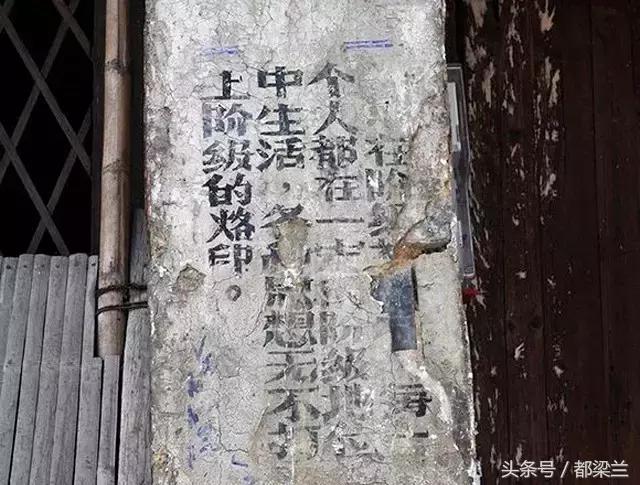 在阶级 每一
个人都在一定的阶级地位
中生活，各种思想无不打
上阶级的烙印。
头条号 / 都梁兰